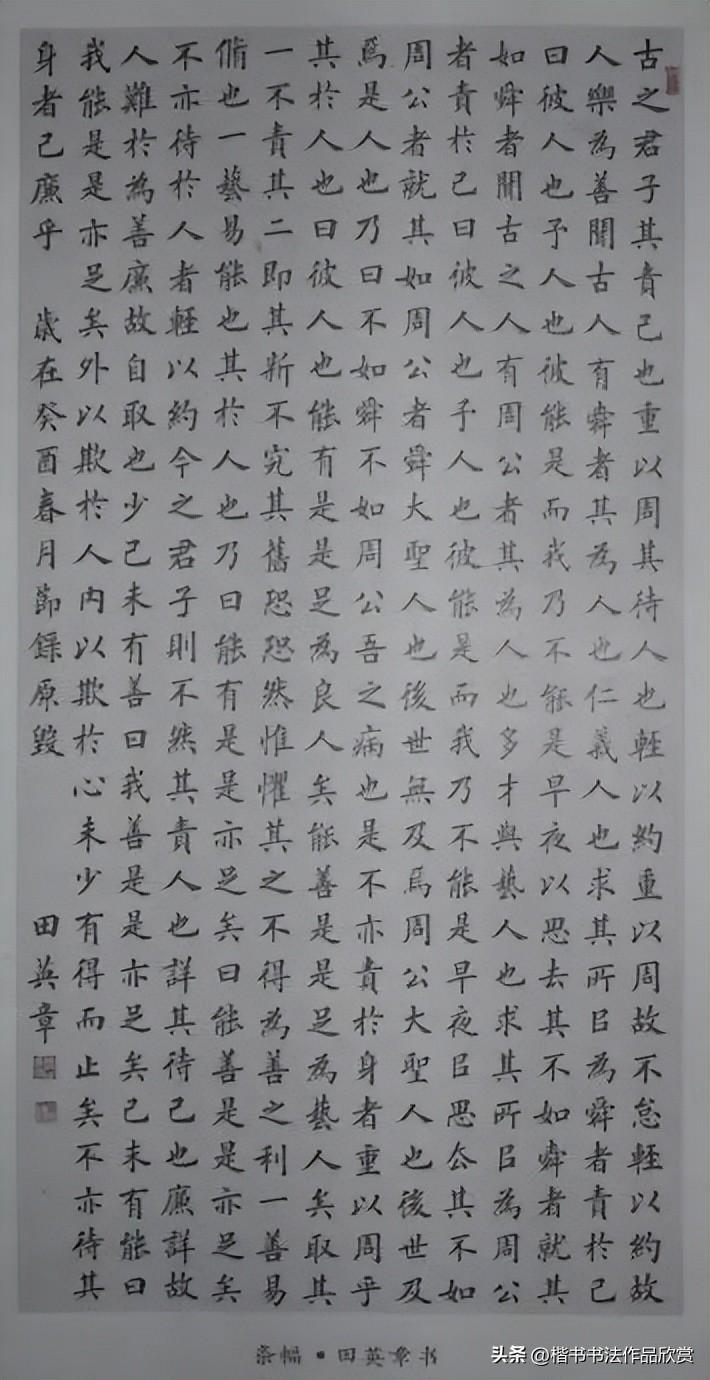 古之君子其責己也重以周其待人也輕以約重以周故不怠輕以約故
人樂為善聞古人有舜者其為人也仁義人也求其所㠯為舜者責於己
曰彼人也予人也彼能是而我乃不能是早夜以思去其不如舜者就其
如舜者聞古之人有周公者其為人也多才與藝人也求其所㠯為周公
者責於己曰彼人也予人也彼能是而我乃不能是早夜㠯思去其不如
周公者就其如周公者舜大聖人也後世無及焉周公大聖人也後世及
焉是人也乃曰不如舜不如周公吾之病也是不亦責於身者重以周乎
其於人也曰彼人也能有是是足為良人矣能善是是足為藝人矣取其
一不責其二即其新不究其舊恐恐然惟懼其之不得為善之利一善易
脩也一藝易能也其於人也乃曰能有是是亦足矣曰能善是是亦足矣
不亦待於人者輕以約今之君子則不然其責人也詳其待己也廉詳故
人難於為善廉故自取也少己未有善曰我善是是亦足矣己未有能曰
我能是是亦足矣外以欺於人內以欺於心未少有得而止矣不亦待其
身者己廉乎 歲在癸酉春月節錄原毀 田英章
条幅·田英章书
头条 @楷书书法作品欣赏